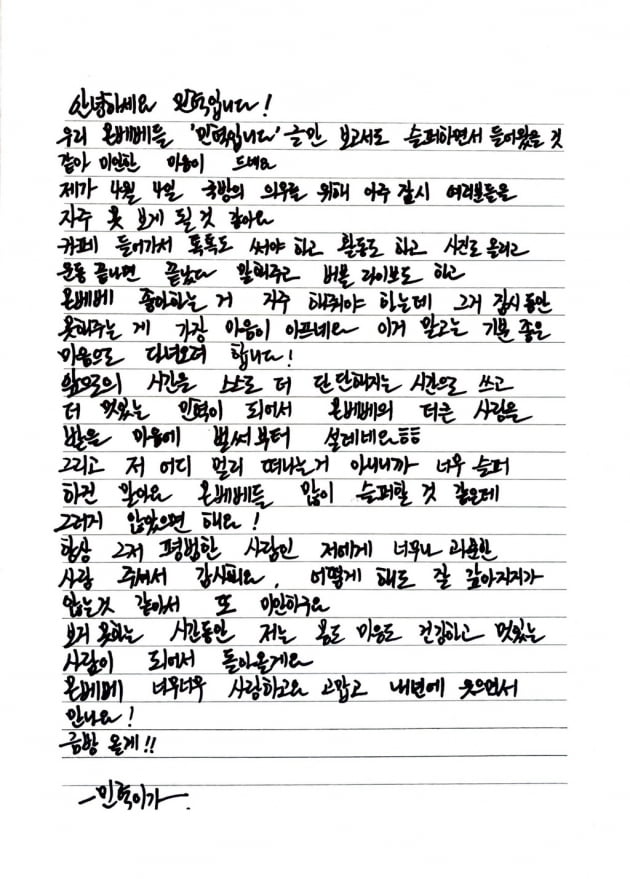 안녕하세요 민혁입니다!
우리 몬베베들 '민혁입니다' 글만 보고서도 슬퍼하면서 들어왔을 것
같아 미안한 마음이 드네요
제가 4월 4일 국방의 의무를 위해 아주 잠시 여러분들을
자주 못 보게 될 것 같아요
카페 들어가서 톡톡도 써야 하고 활동도 하고 사진도 올리고
운동 끝나면 끝났다 말해주고 버블 라이브도 하고
몬베베 좋아하는 거 자주 해줘야 하는데 그거 잠시 동안
못해주는 게 가장 마음이 아프네요 이거 말고는 기분 좋은
마음으로 다녀오려 합니다!
앞으로의 시간을 스스로 더 단단해지는 시간으로 쓰고
더 멋있는 민혁이 되어서 몬베베의 더 큰 사랑을
받을 마음에 벌써부터 설레네요ㅎㅎ
그리고 저 어디 멀리 떠나는거 아니니까 너무 슬퍼
하진 말아요 몬베베들 많이 슬퍼할 것 같은데
그러지 않았으면 해요!
항상 그저 평범한 사람인 저에게 너무나 과분한
사랑 주셔서 감사해요, 어떻게 해도 잘 갚아지지가
않는것 같아서 또 미안하구요
보지 못하는 시간동안 저는 몸도 마음도 건강하고 멋있는
사람이 되어서 돌아올게요
몬베베 너무너무 사랑하고요 고맙고 내년에 웃으면서
만나요!
금방 올게!!
-민혁이가-